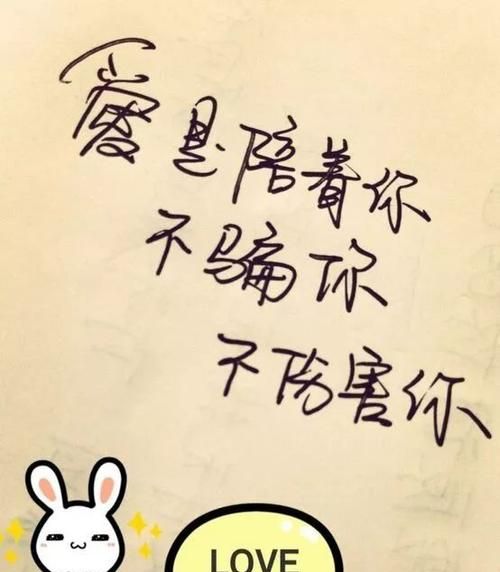 愛是陪着你
不骗你
不伤害你
LOVE